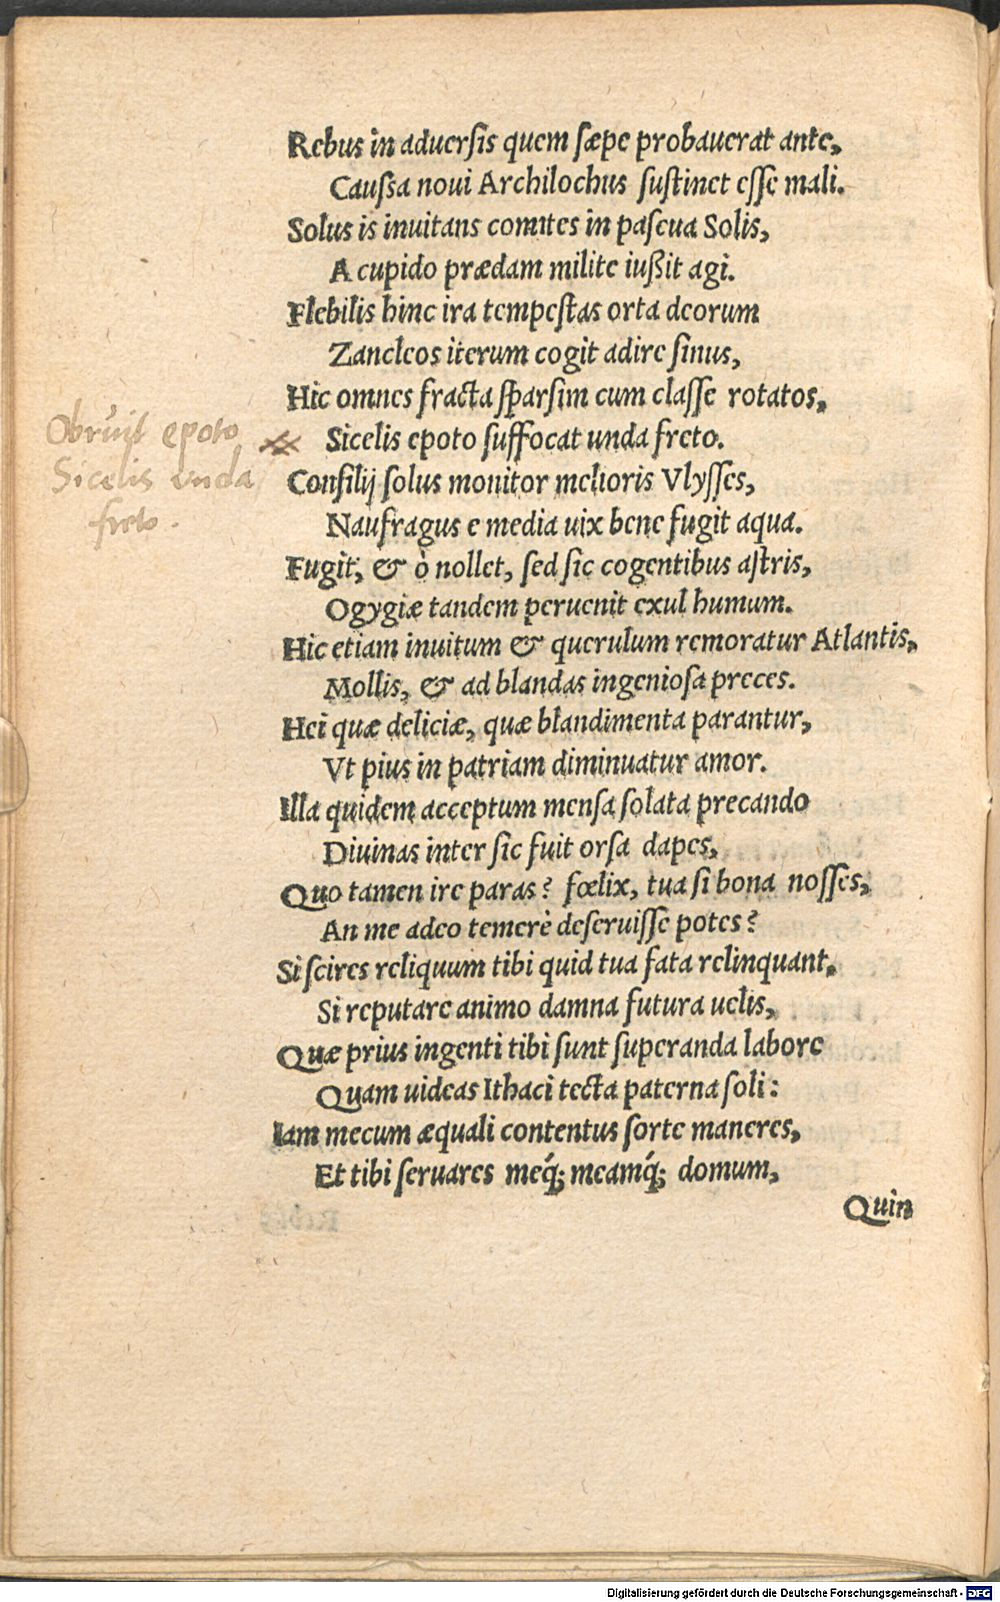 Rebus in aduersis quem sæpe probauerat ante,
Caussa noui Archilochus sustinet esse mali.
Solus is inuitans comites in pascua Solis,
A cupido prædam milite iußit agi.
Flebilis hinc ira tempestas orta deorum
Zancleos iterum cogit adire sinus,
Hic omnes fracta sparsim cum classe rotatos,
Sicelis epoto suffocat unda freto.
Obruit epoto
Sicelis unda
freto.
Consilij solus monitor melioris Vlysses,
Naufragus e media uix bene fugit aqua.
Fugit, & ò nollet, sed sic cogentibus astris,
Ogygiæ tandem peruenit exul humum.
Hic etiam inuitum & querulum remoratur Atlantis,
Mollis, & ad blandas ingeniosa preces.
Hei quæ deliciæ, quæ blandimenta parantur,
Vt pius in patriam diminuatur amor.
Illa quidem acceptum mensa solata precando
Diuinas inter sic fuit orsa dapes,
Quo tamen ire paras? fœlix, tua si bona nosses,
An me adeo temerè deseruisse potes?
Si scires reliquum tibi quid tua fata relinquant,
Si reputare animo damna futura uelis,
Quæ prius ingenti tibi sunt superanda labore
Quam uideas Ithaci tecta paterna soli:
Iam mecum æquali contentus sorte maneres,
Et tibi seruares meq́; meamq́; domum,
Quin
Digitalisierung gefördert durch die Deutsche Forschungsgemeinschaft - DFG